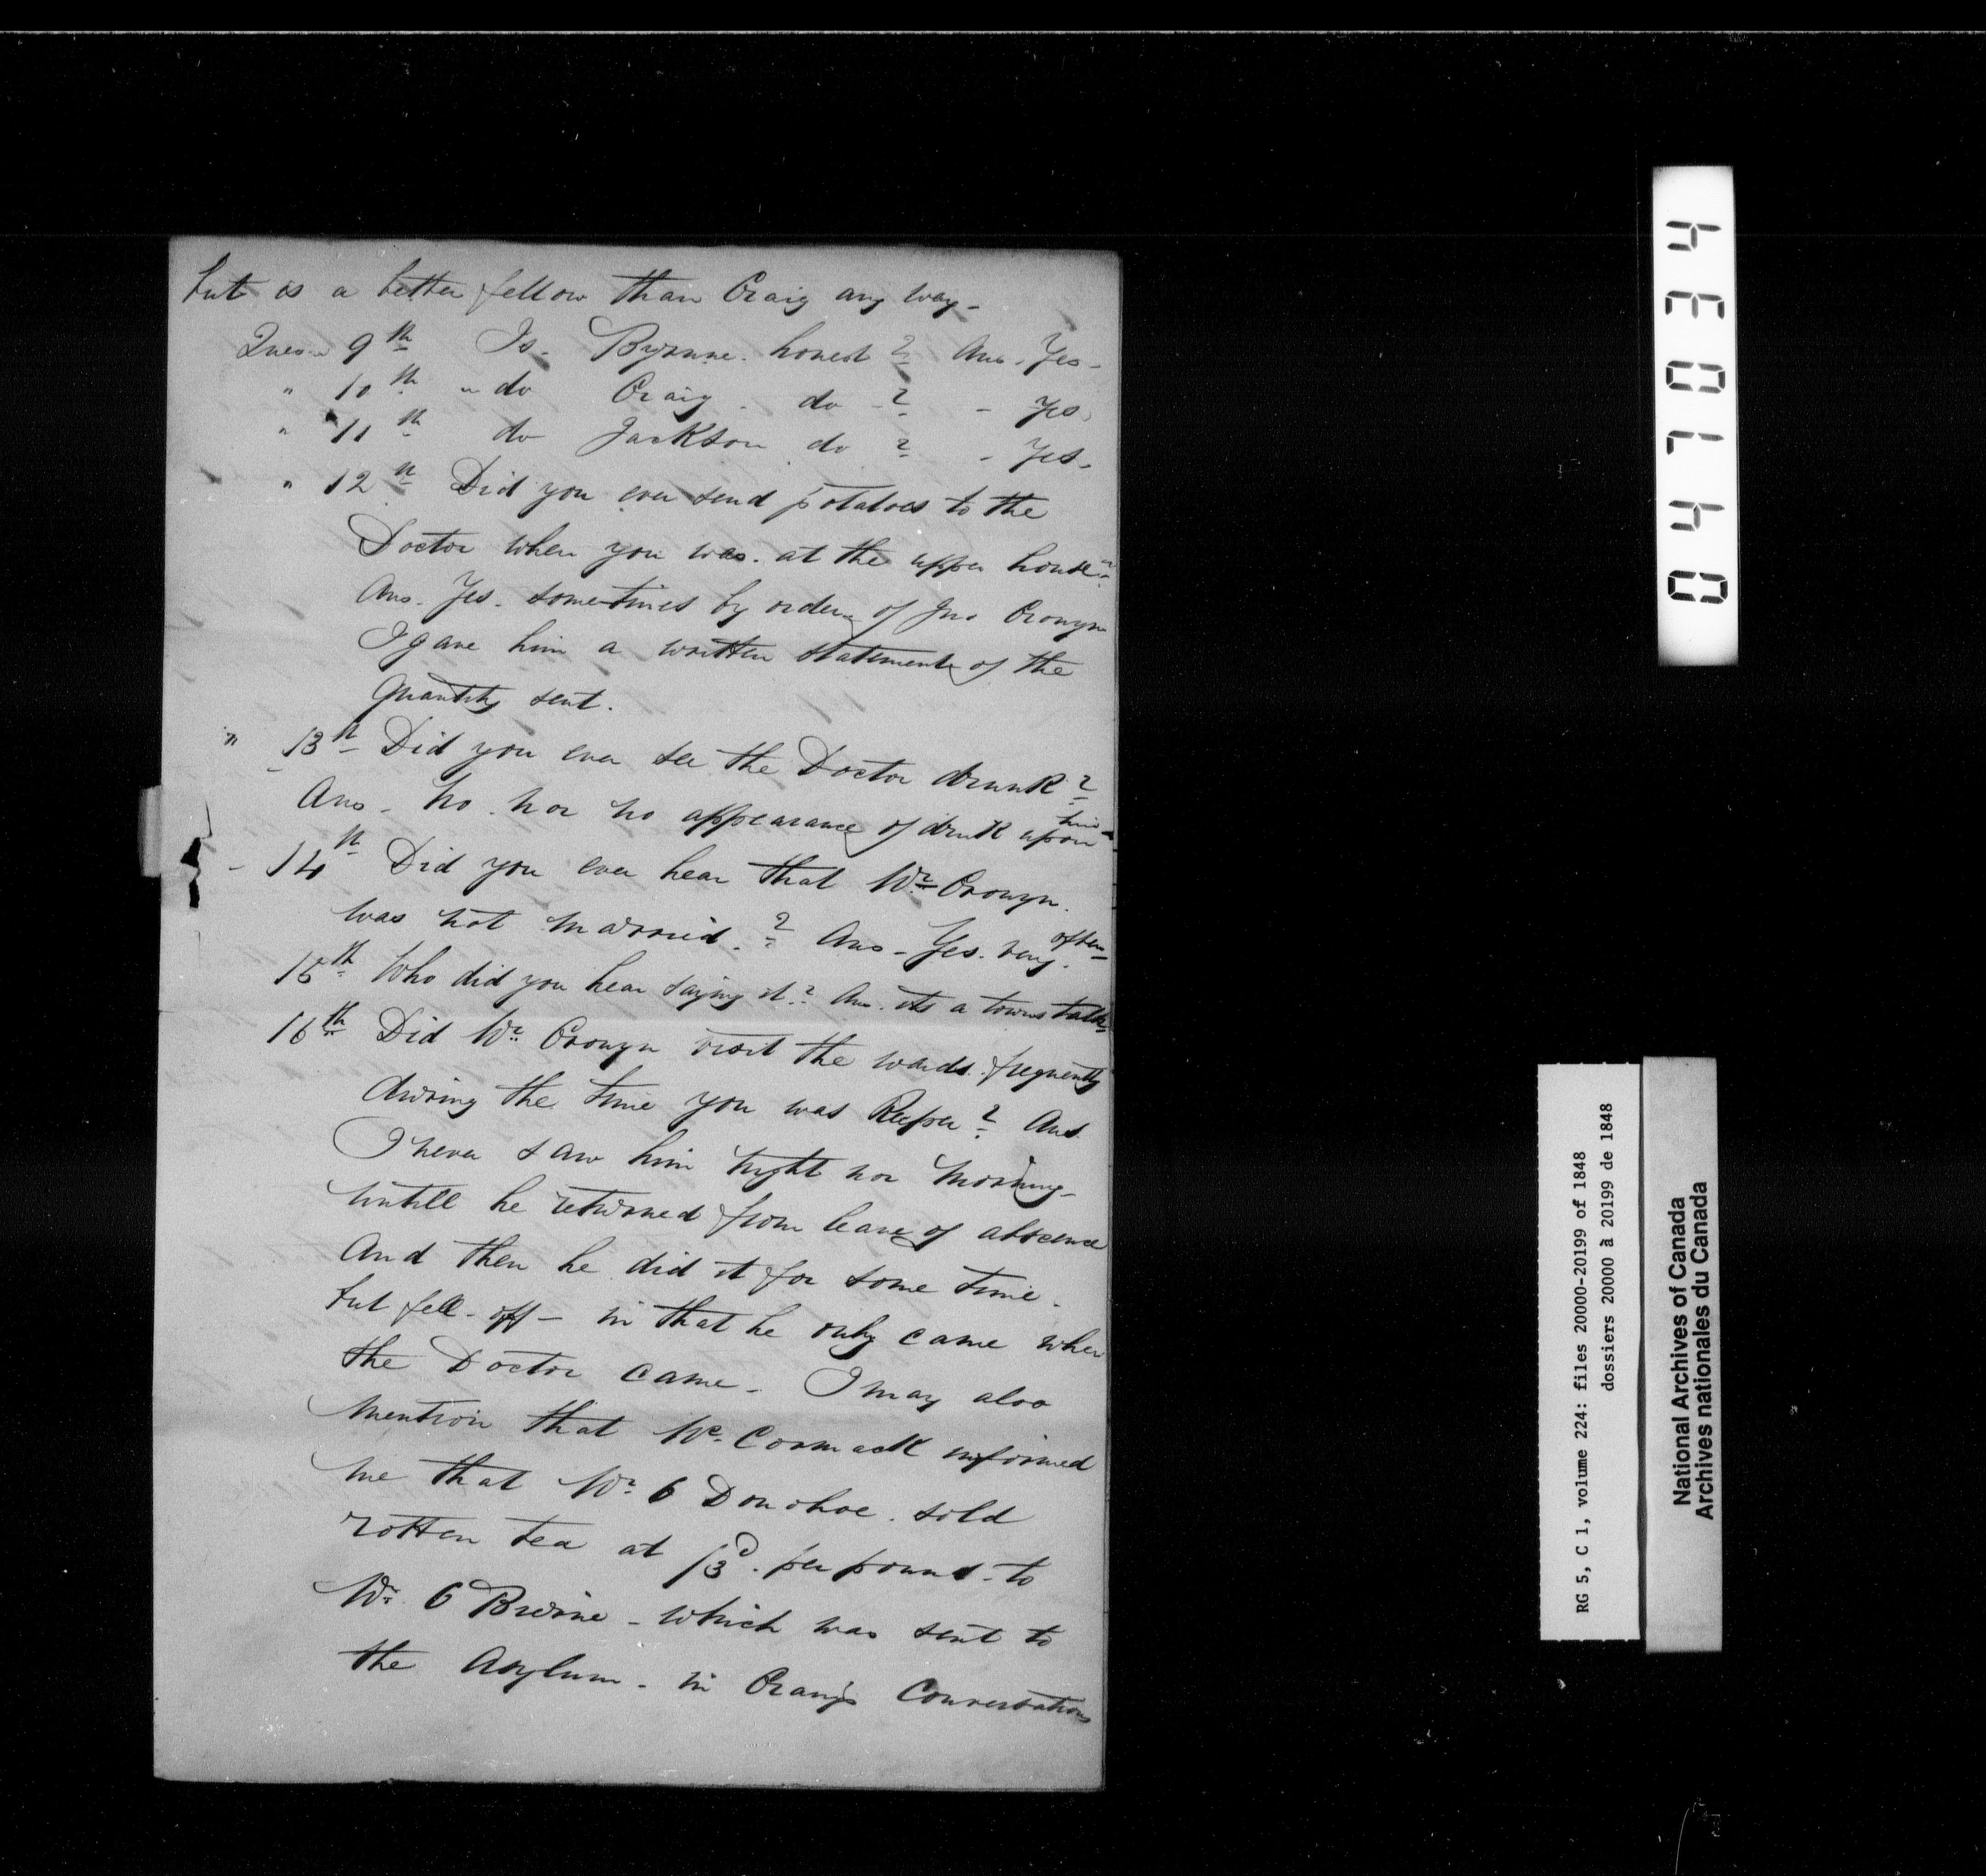 but is a better fellow than Craig any way -
Ques. 9th Is. Byrnne. honest ? Ans. Yes -
" 10th " do Craig . do ? - Yes
" 11th do Jackson do ? - Yes -
" 12th Did you ever send potatoes to the
Doctor when you was. at the upper house ?
Ans. Yes. sometimes by order of Jno Cronyn
I gave him a written statement of the
quantity sent.
" 13th Did you ever see the Doctor drunk ?
Ans - no . nor no appearance of drink upon him -
- 14th Did you ever hear that Mr Cronyn.
was not married. ? Ans - Yes. very. often -
15th Who did you hear saying it ? Ans. its a towns talk
16th Did Mr Cronyn visit the wards. frequently
during the time you was Keeper ? Ans
I never saw him night nor morning -
untill he returned from leave of absence
And then he did it for some time .
but fell - off - in that he only came when
the Doctor came - I may also
mention that Mc Cormack informed
me that Mr O Donohoe . sold
rotten tea at 13d. per pound - to
Mr O Brine - which was sent to
the Asylum - in Craigs Conversations
043074034
RG 5, C 1, volume 224: files 20000-20199 of 1848
dossiers 20000 à 20199 de 1848
National Archives of Canada
Archives nationales du Canada